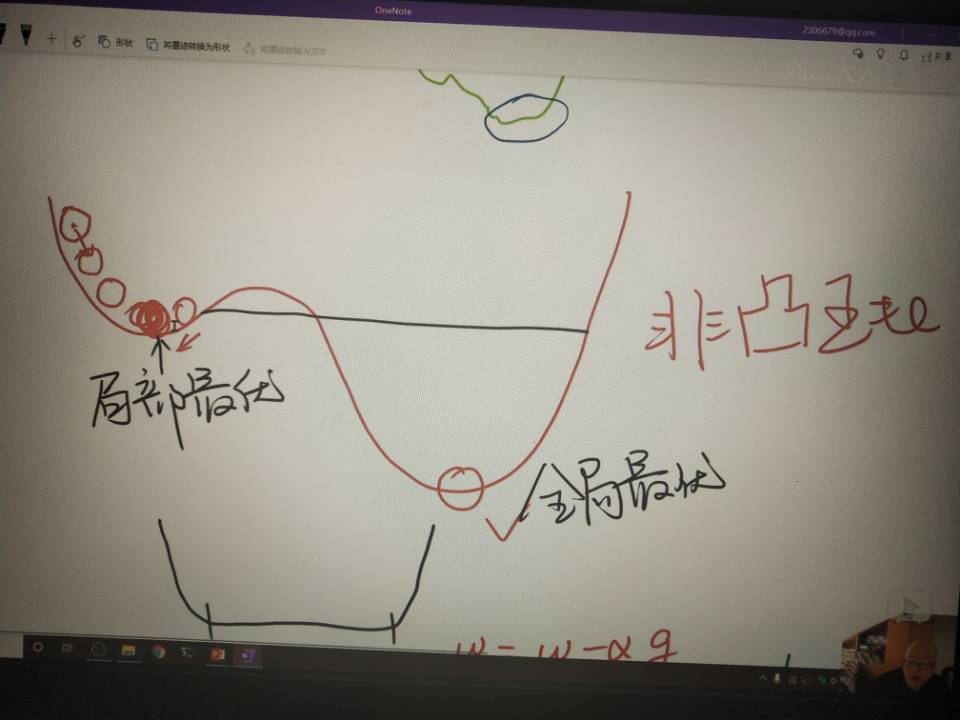 OneNote
2306679@qq.com
形状
将墨迹转换为形状
将墨迹转换为文本
共享
非凸
局部最优
全局最优
w = w - α g